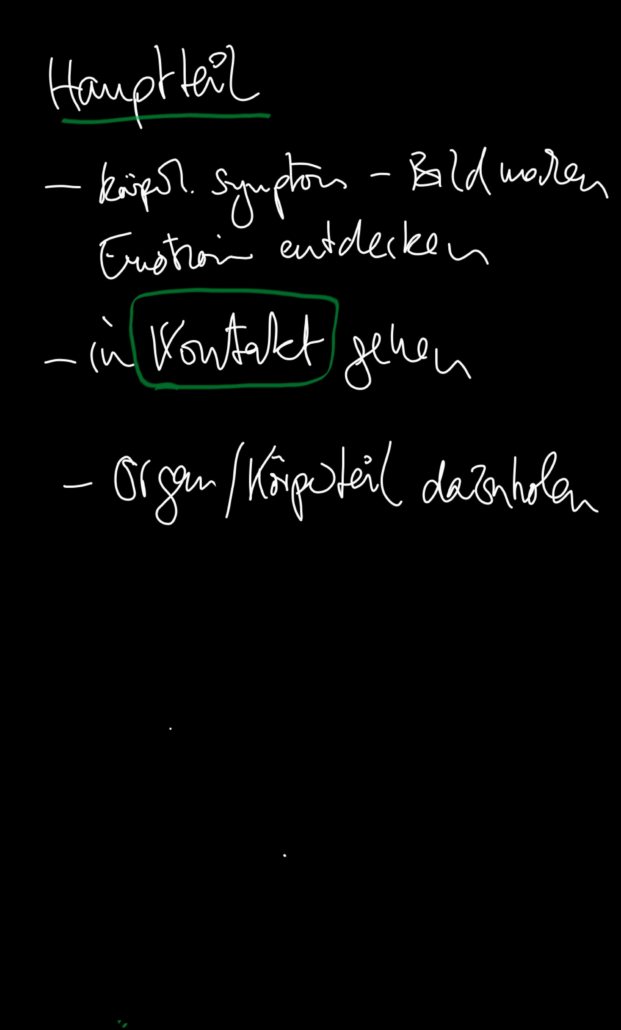 Hauptteil
– körperl. Symptom – Bild malen
Emotion entdecken
– in Kontakt gehen
– Organ/Körperteil dazuholen